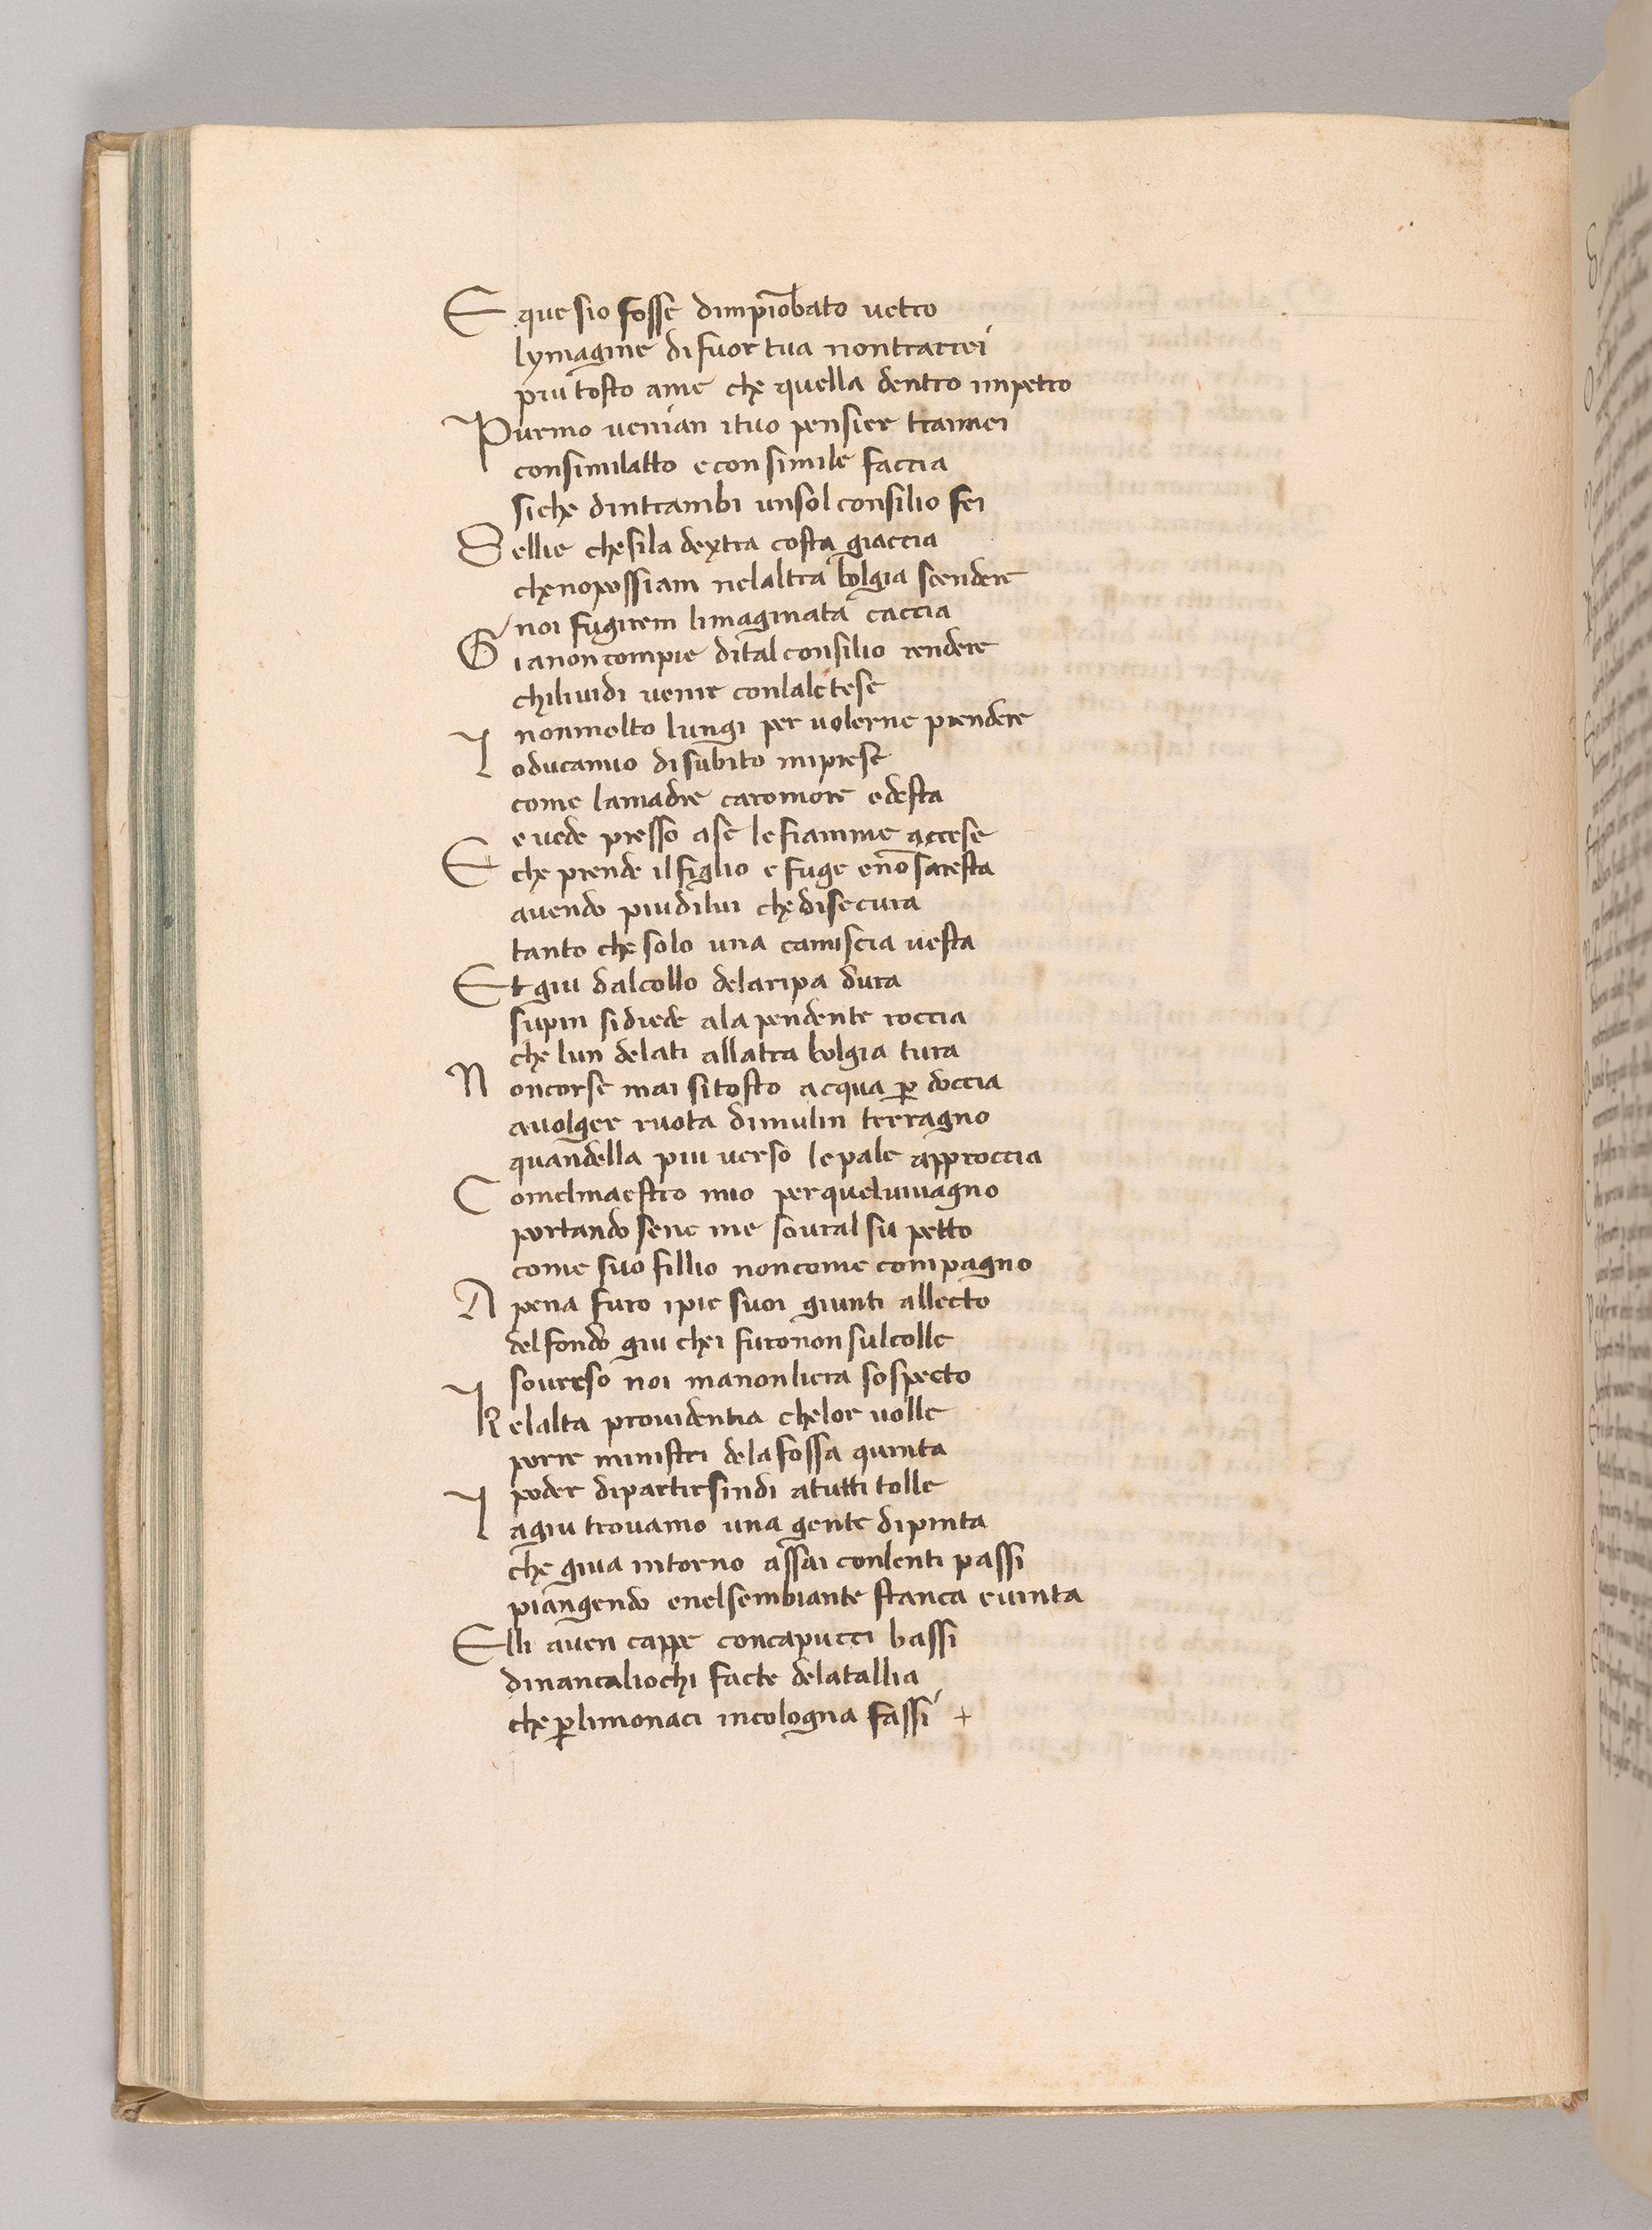 E que sio fosse dimpiobato vetro
lymagine di fuor tua nontrarrei
piu tosto ame che quella dentro impetro
Purmo venian i tuo pensier tramiei
consimilatto e con simile faccia
siche dintrambi unsol consilio fei
Sellie chesila dextra costa giaccia
che nopossiam nelaltra bolgia scendere
noi fugirem limaginata caccia
Gia non compie dital consilio rendere
chilividi venir conlaletese
nonmolto lungi per volerne prendere
Ioducamio disubito miprese
come lamadre caromore edesta
e vede presso ase lefiamme accese
E che prende ilfiglio e fuge enō saresta
avendo piudilui che disecura
tanto che solo una camiscia vesta
Et giu dalcollo delaripa dura
supin sidiede ala pendente roccia
che lun delati allatra bolgia tura
Noncorse mai sitosto acqua ꝑ doccia
avolger ruota dimulin terragno
quandella piu verso lepale approccia
Comelmaestro mio perqueluivagno
portando sene me sovral su petto
come suo fillio noncome compagno
Apena furo ipie suoi giunti allecto
delfondo giu chei furonon sulcolle
sovresso noi manonliera sospecto
Kelalta providentia chelor volle
porre ministri delafossa quinta
poder dipartirsindi atutti tolle
Iagiu trovamo una gente dipinta
che giva intorno assai conlenti passi
piangendo enelsembiante stanca evinta
Elli aven cappe concapucci bassi
dinancaliochi facte delatallia
che ꝑlimonaci incologna fassi +